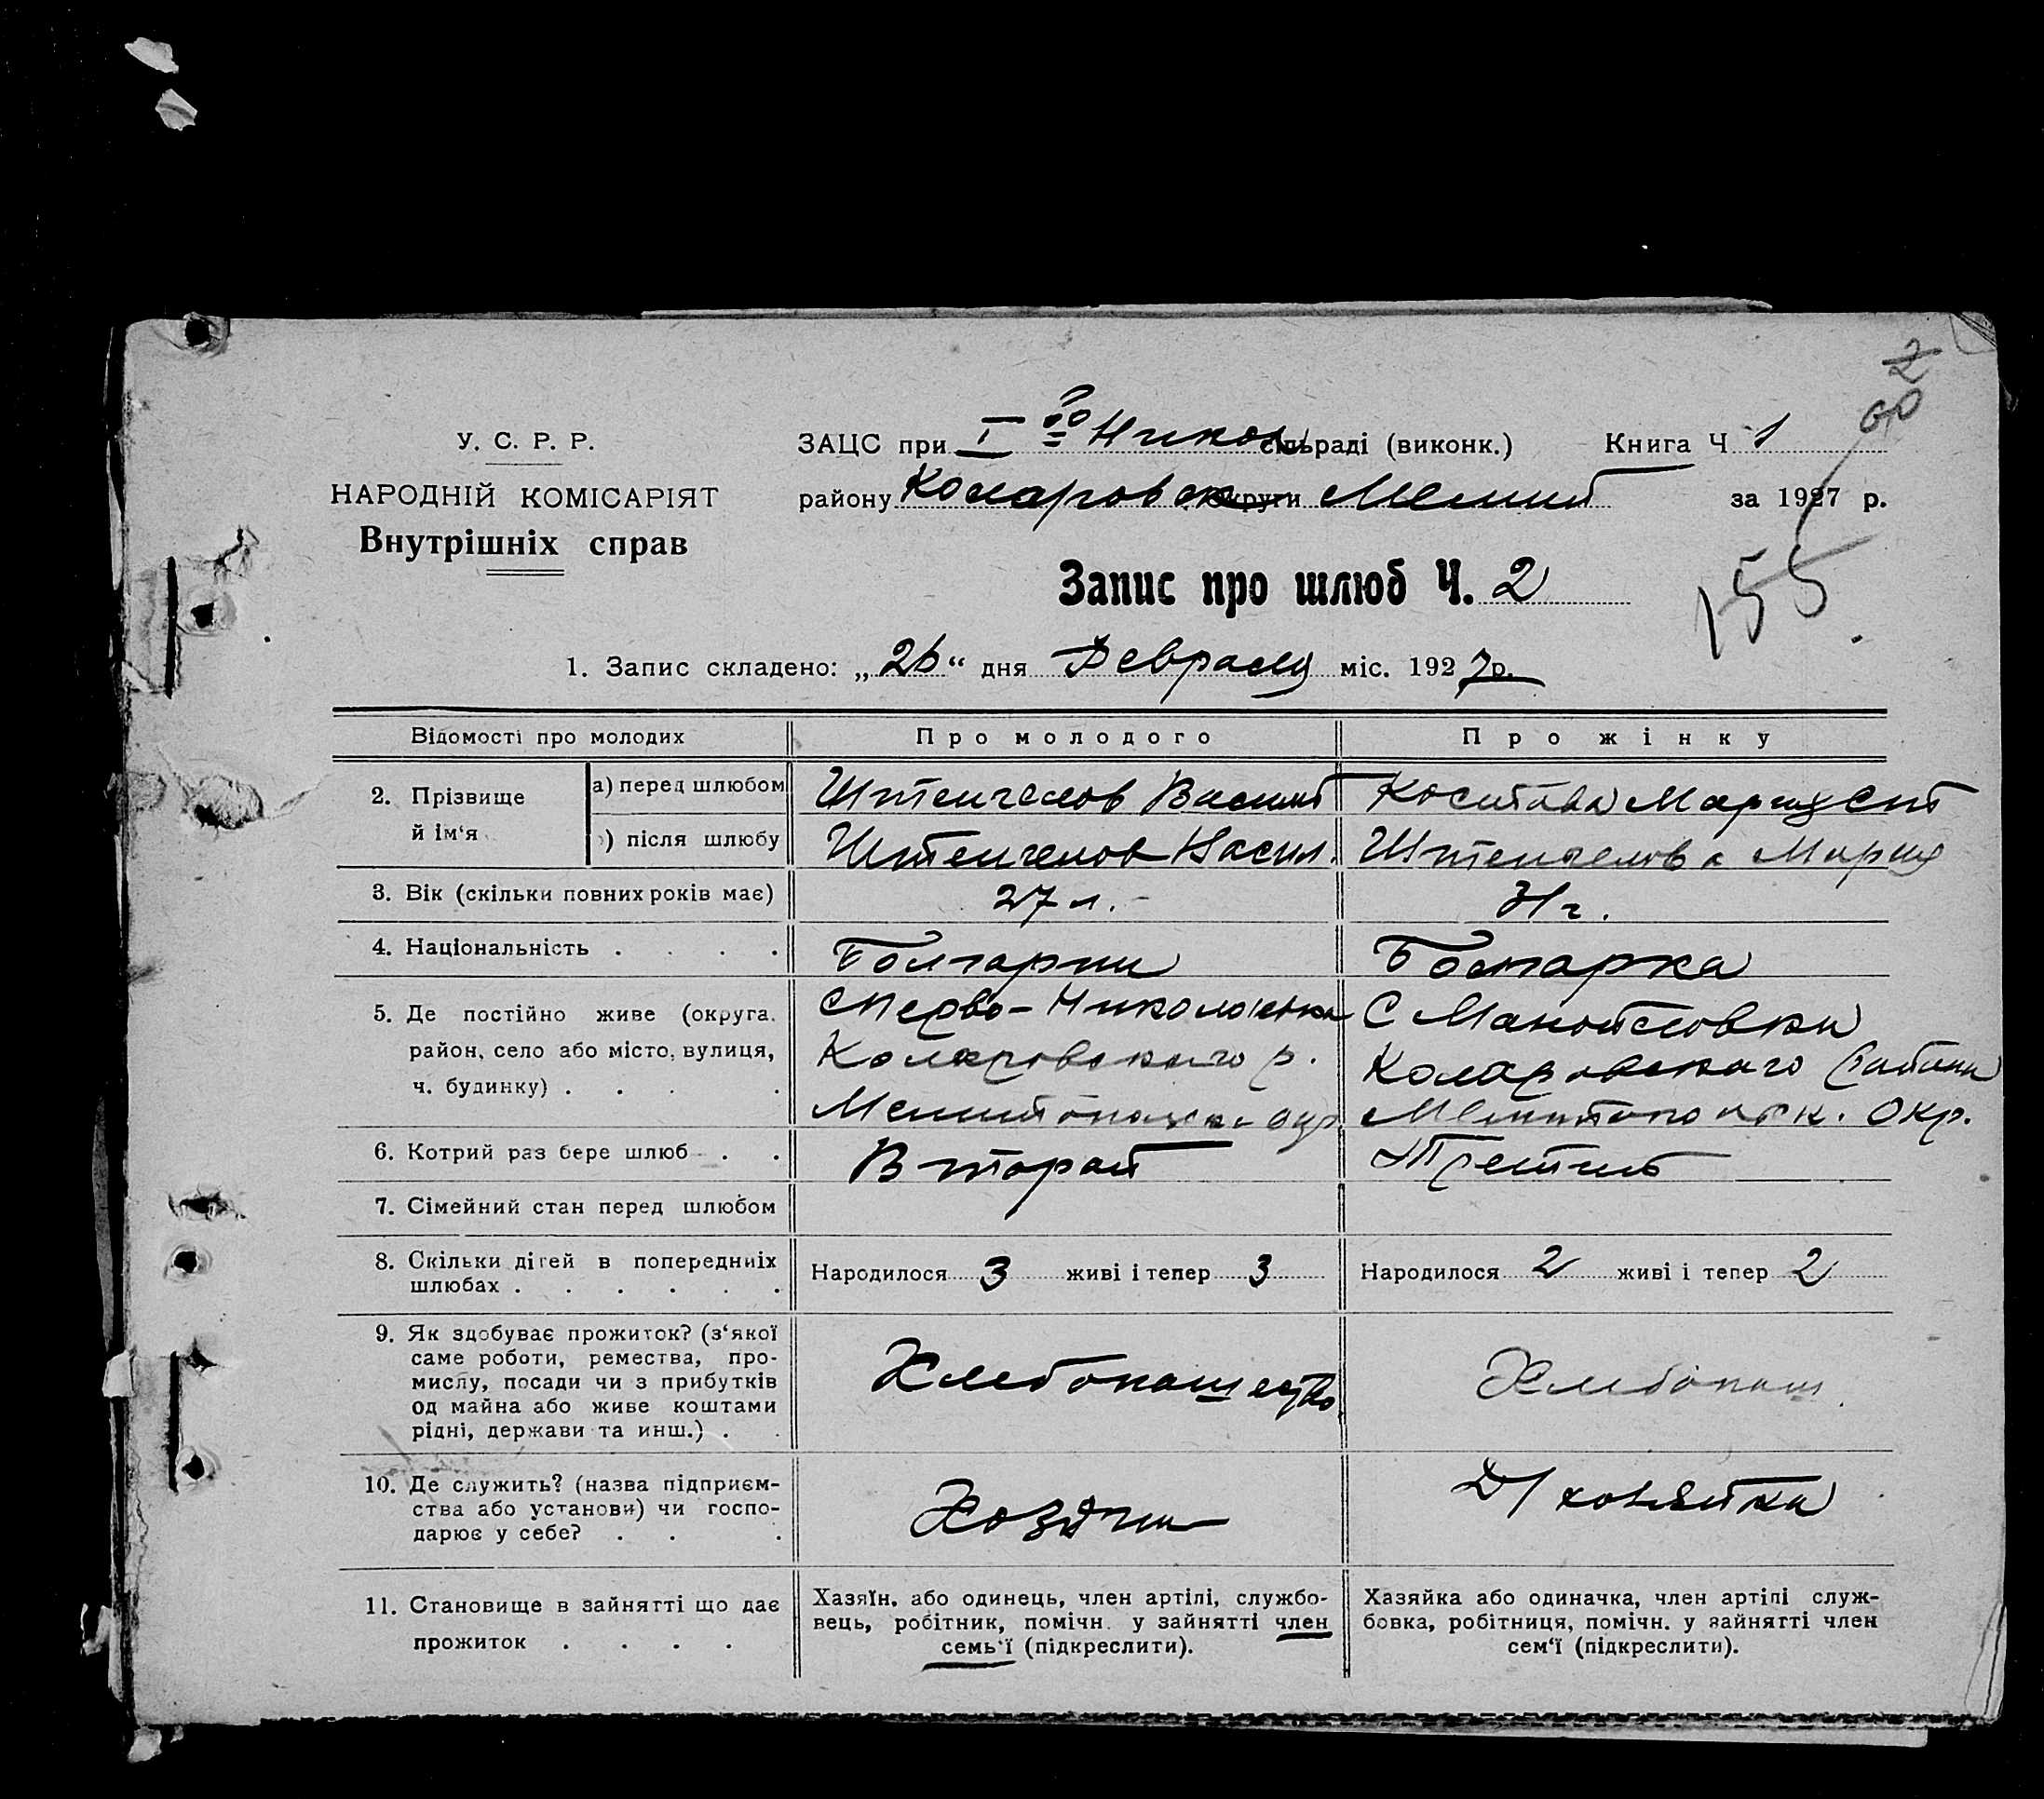 2
60
155
У. С. Р. Р.
НАРОДНІЙ КОМІСАРІЯТ
Внутрішніх справ
ЗАЦС при I Никол сільраді (виконк.) Книга Ч 1
району Коларовск округи Мелит за 1927 р.
Запис про шлюб Ч. 2
1. Запис складено: „26“ дня Февраля міс. 1927р.
Відомості про молодих Про молодого Про жінку
2. Прізвище й ім‘я
а) перед шлюбом Штенгелов Васил Марія
) після шлюбу Штенгелов Васил. Штенгелова Мария
3. Вік (скільки повних років має) 27 л. 31 г.
4. Національність . . . . Болгарин Болгарка
5. Де постійно живе (округа, С Перво-Николаевка С Манойловки
район, село або місто, вулиця, Коларовского р. Коларовского района
ч. будинку) . . . . Мелитопольск. Окр.
6. Котрий раз бере шлюб . . Второй Третий
7. Сімейний стан перед шлюбом
8. Скільки дітей в попередніх Народилося 3 живі і тепер 3 Народилося 2 живі і тепер 2
шлюбах . . . . . .
9. Як здобуває прожиток? (з‘якої
саме роботи, ремества, про-
мислу, посади чи з прибутків Хлебопашество Хлебопаш
од майна або живе коштами
рідні, держави та инш.) . .
10. Де служить? (назва підприєм-
ства або установи) чи госпо- Хозяин Д/хозяйка
дарює у себе? . . .
11. Становище в зайнятті що дає Хазяїн, або одинець, член артілі, службо- Хазяйка або одиначка, член артілі служ-
прожиток . . . . вець, робітник, помічн. у зайнятті член бовка, робітниця, помічн. у зайнятті член
семь‘ї (підкреслити). сем‘ї (підкреслити).